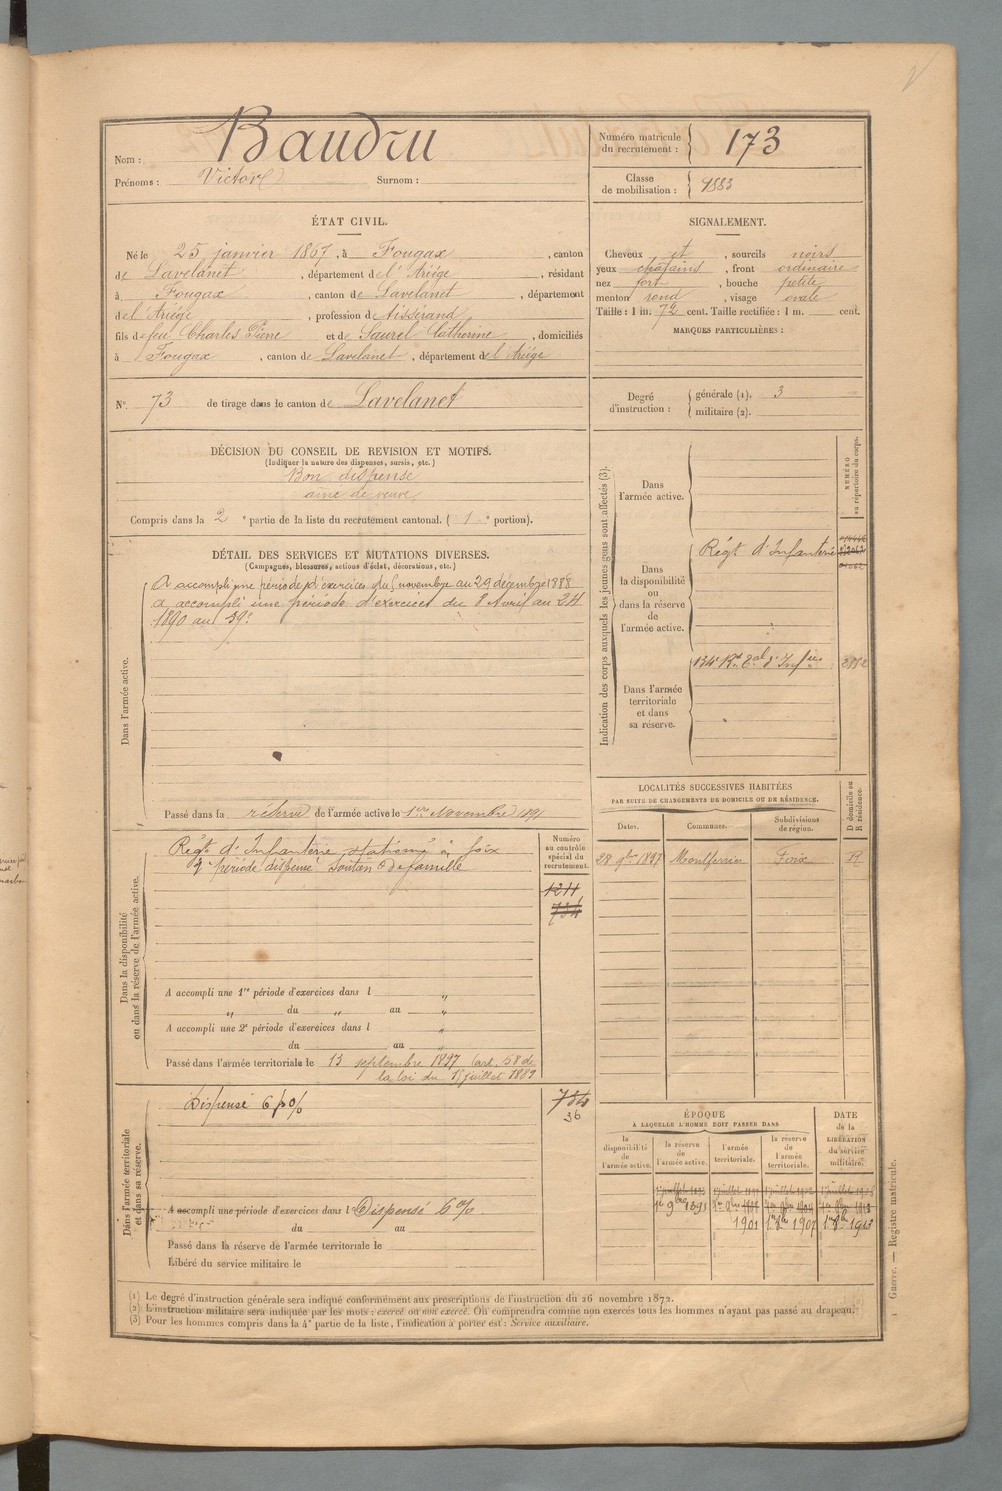 Nom : Baudru
Prénoms : Victor Surnom :
Numéro matricule du recrutement : 173
Classe de mobilisation : 1883
ÉTAT CIVIL.
Né le 25 janvier 1867, à Fougax, canton
de Lavelanet, département de l'Ariége, résidant
à Fougax, canton de Lavelanet, département
de l'Ariége, profession de tisserand
fils de feu Charles Pierre et de Saurel Catherine, domiciliés
à Fougax, canton de Lavelanet, département de l'Ariége
N° 73 de tirage dans le canton de Lavelanet
SIGNALEMENT.
Cheveux et, sourcils noirs
yeux chatains, front ordinaire
nez fort, bouche petite
menton rond, visage ovale
Taille : 1 m. 72 cent. Taille rectifiée : 1 m. cent.
MARQUES PARTICULIÈRES :
Degré d'instruction : générale (1). 3
militaire (2).
DÉCISION DU CONSEIL DE REVISION ET MOTIFS.
(Indiquer la nature des dispenses, sursis, etc.)
Bon dispensé
ainé de veuve
Compris dans la 2e partie de la liste du recrutement cantonal. (1e portion).
DÉTAIL DES SERVICES ET MUTATIONS DIVERSES.
(Campagnes, blessures, actions d'éclat, décorations, etc.)
Dans l'armée active.
A accompli une période d'exercices du 5 novembre au 29 décembre 1888
a accompli une période d'exercices du 8 Avril au 24
1890 au 59e
Passé dans la réserve de l'armée active le 1er Novembre 1891
Indication des corps auxquels les jeunes gens sont affectés (3).
NUMÉRO au répertoire du corps.
Dans l'armée active.
Dans la disponibilité ou dans la réserve de l'armée active.
Régt d'Infanterie
Dans l'armée territoriale et dans sa réserve.
134e Rt Tal d'Infie
Dans la disponibilité ou dans la réserve de l'armée active.
Régt d'Infanterie stationné à Foix
2e période dispensé soutien de famille
Numéro au contrôle spécial du recrutement.
1211
734
A accompli une 1re période d'exercices dans l "
" du " au "
A accompli une 2e période d'exercices dans l "
du au "
Passé dans l'armée territoriale le 13 septembre 1897 (art. 58 de
la loi du 15 juillet 1889
LOCALITÉS SUCCESSIVES HABITÉES
PAR SUITE DE CHANGEMENTS DE DOMICILE OU DE RÉSIDENCE.
Dates. Communes. Subdivisions de région. D domicile ou R résidence.
28 9bre 1897 Montferrier Foix R
Dans l'armée territoriale et dans sa réserve.
Dispensé 6 p 0/0
734
36
A accompli une période d'exercices dans l Dispensé 6 %
du au
Passé dans la réserve de l'armée territoriale le
Libéré du service militaire le
ÉPOQUE
A LAQUELLE L'HOMME DOIT PASSER DANS
DATE de la LIBÉRATION du service militaire.
la disponibilité de l'armée active. la réserve de l'armée active. l'armée territoriale. la réserve de l'armée territoriale.
1er 9bre 1891
1901 1907 1913
(1) Le degré d'instruction générale sera indiqué conformément aux prescriptions de l'instruction du 26 novembre 1872.
(2) L'instruction militaire sera indiquée par les mots : exercé ou non exercé. On comprendra comme non exercés tous les hommes n'ayant pas passé au drapeau.
(3) Pour les hommes compris dans la 4e partie de la liste, l'indication à porter est : Service auxiliaire.
Guerre. — Registre matricule.